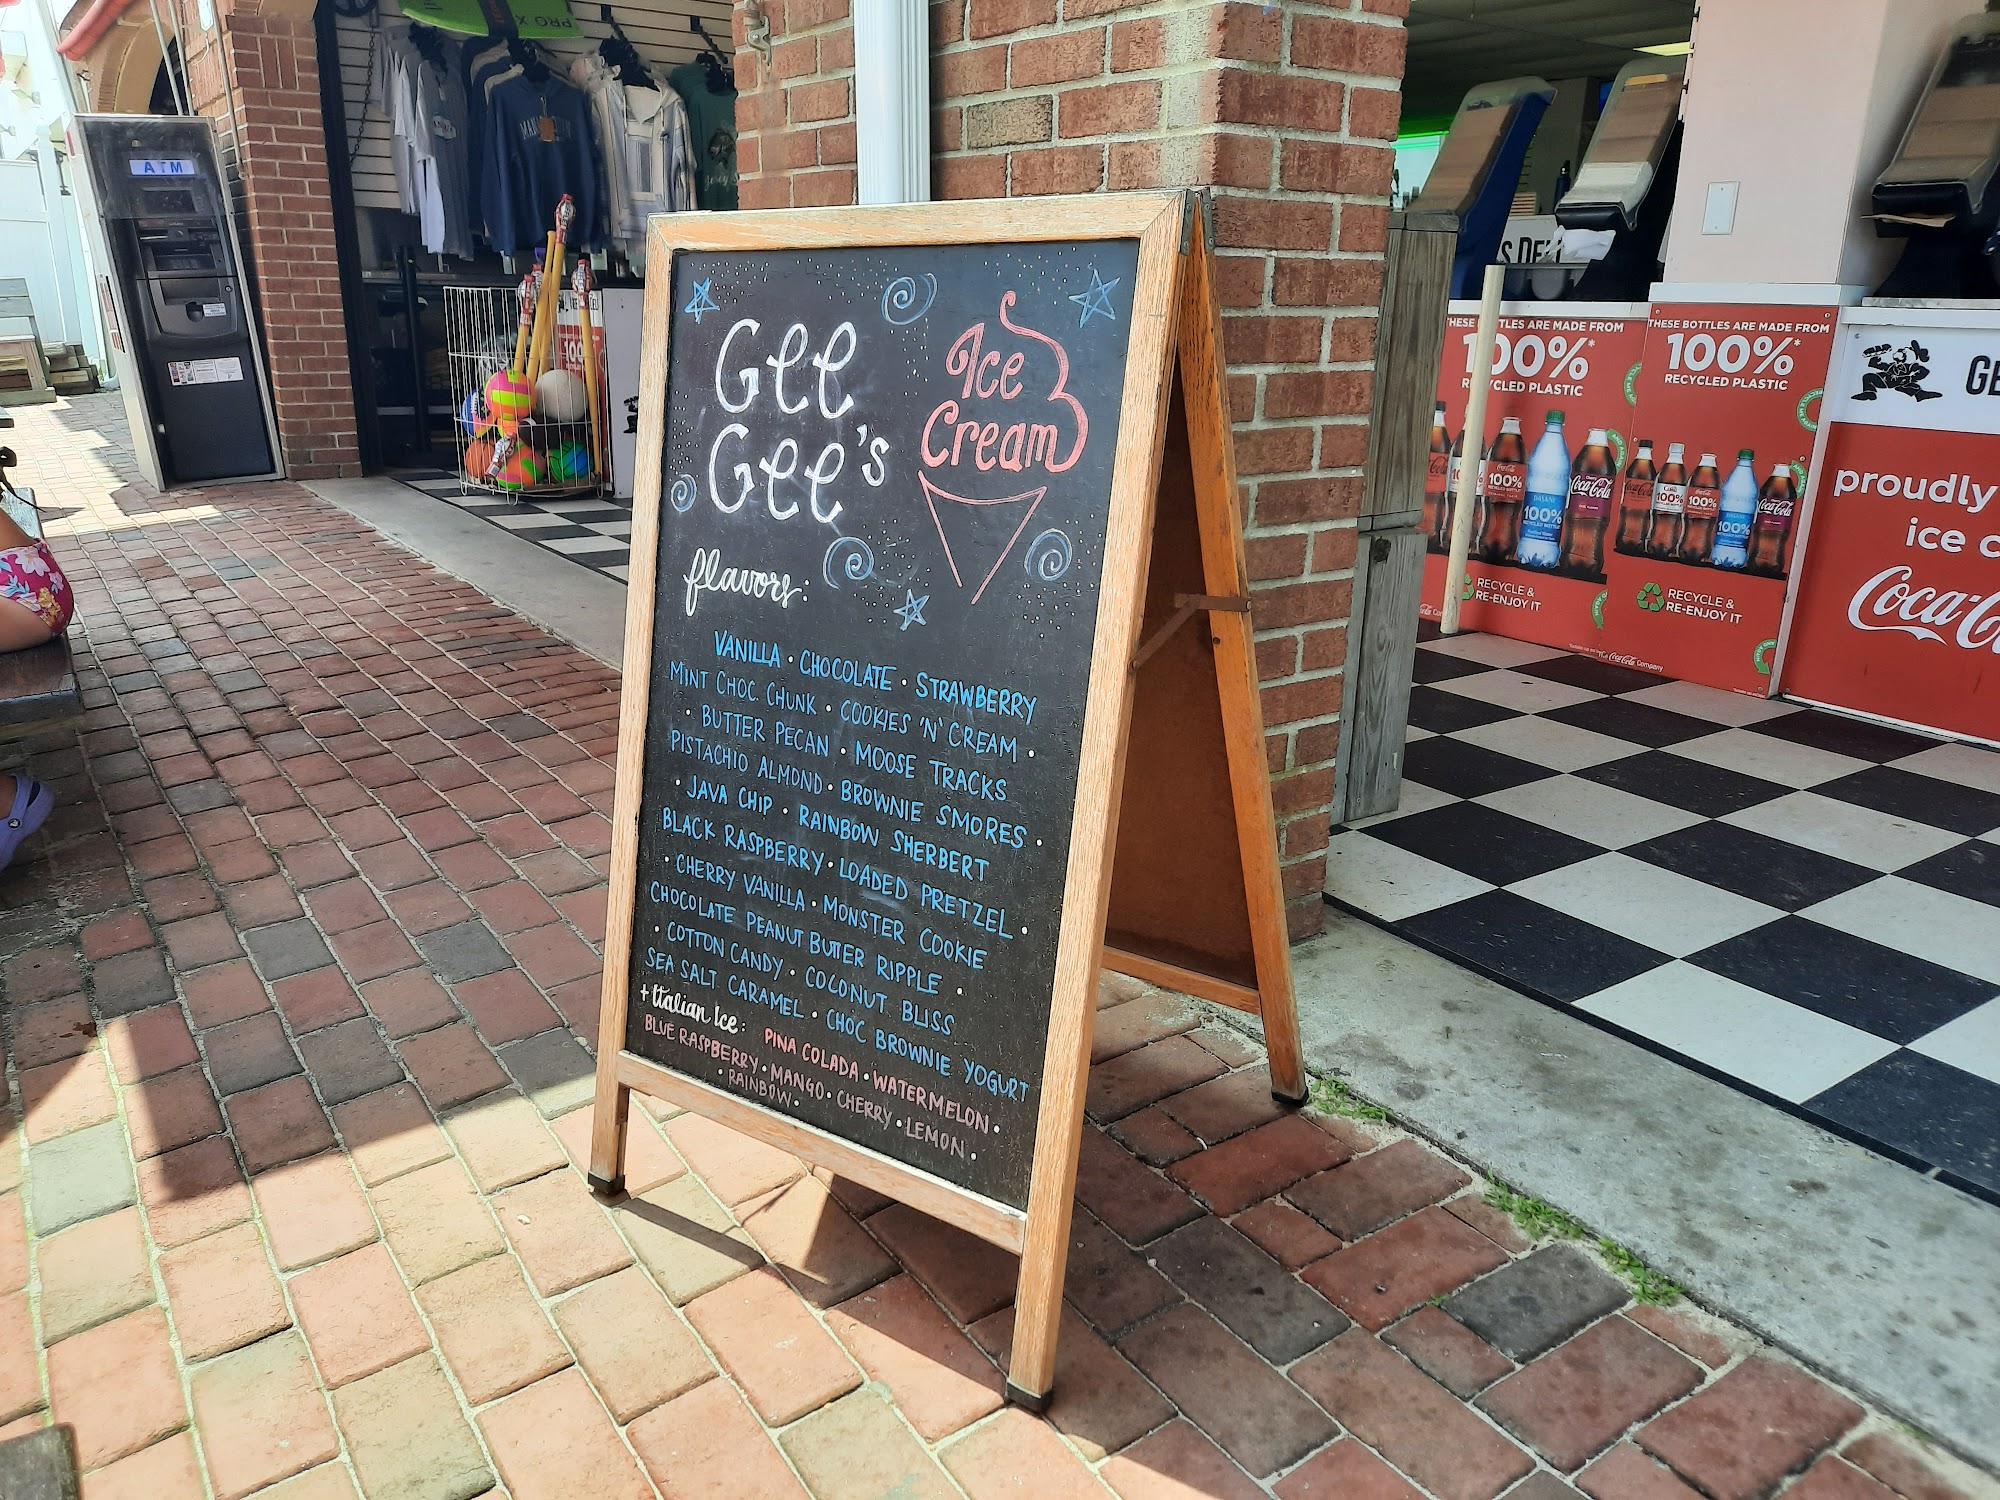 Gee
Gee's
Ice
Cream
flavors:
VANILLA • CHOCOLATE • STRAWBERRY
MINT CHOC CHUNK • COOKIES 'N' CREAM •
• BUTTER PECAN • MOOSE TRACKS
PISTACHIO ALMOND • BROWNIE SMORES •
• JAVA CHIP • RAINBOW SHERBERT
BLACK RASPBERRY • LOADED PRETZEL •
• CHERRY VANILLA • MONSTER COOKIE
CHOCOLATE PEANUT BUTTER RIPPLE •
• COTTON CANDY • COCONUT BLISS
SEA SALT CARAMEL • CHOC BROWNIE YOGURT
+ Italian Ice: PINA COLADA • WATERMELON •
BLUE RASPBERRY • MANGO • CHERRY • LEMON •
• RAINBOW •
ATM
PRO X
THESE BOTTLES ARE MADE FROM
100%*
RECYCLED PLASTIC
RECYCLE &
RE-ENJOY IT
THESE BOTTLES ARE MADE FROM
100%*
RECYCLED PLASTIC
RECYCLE &
RE-ENJOY IT
The Coca-Cola Company
proudly
ice c
Coca-Co